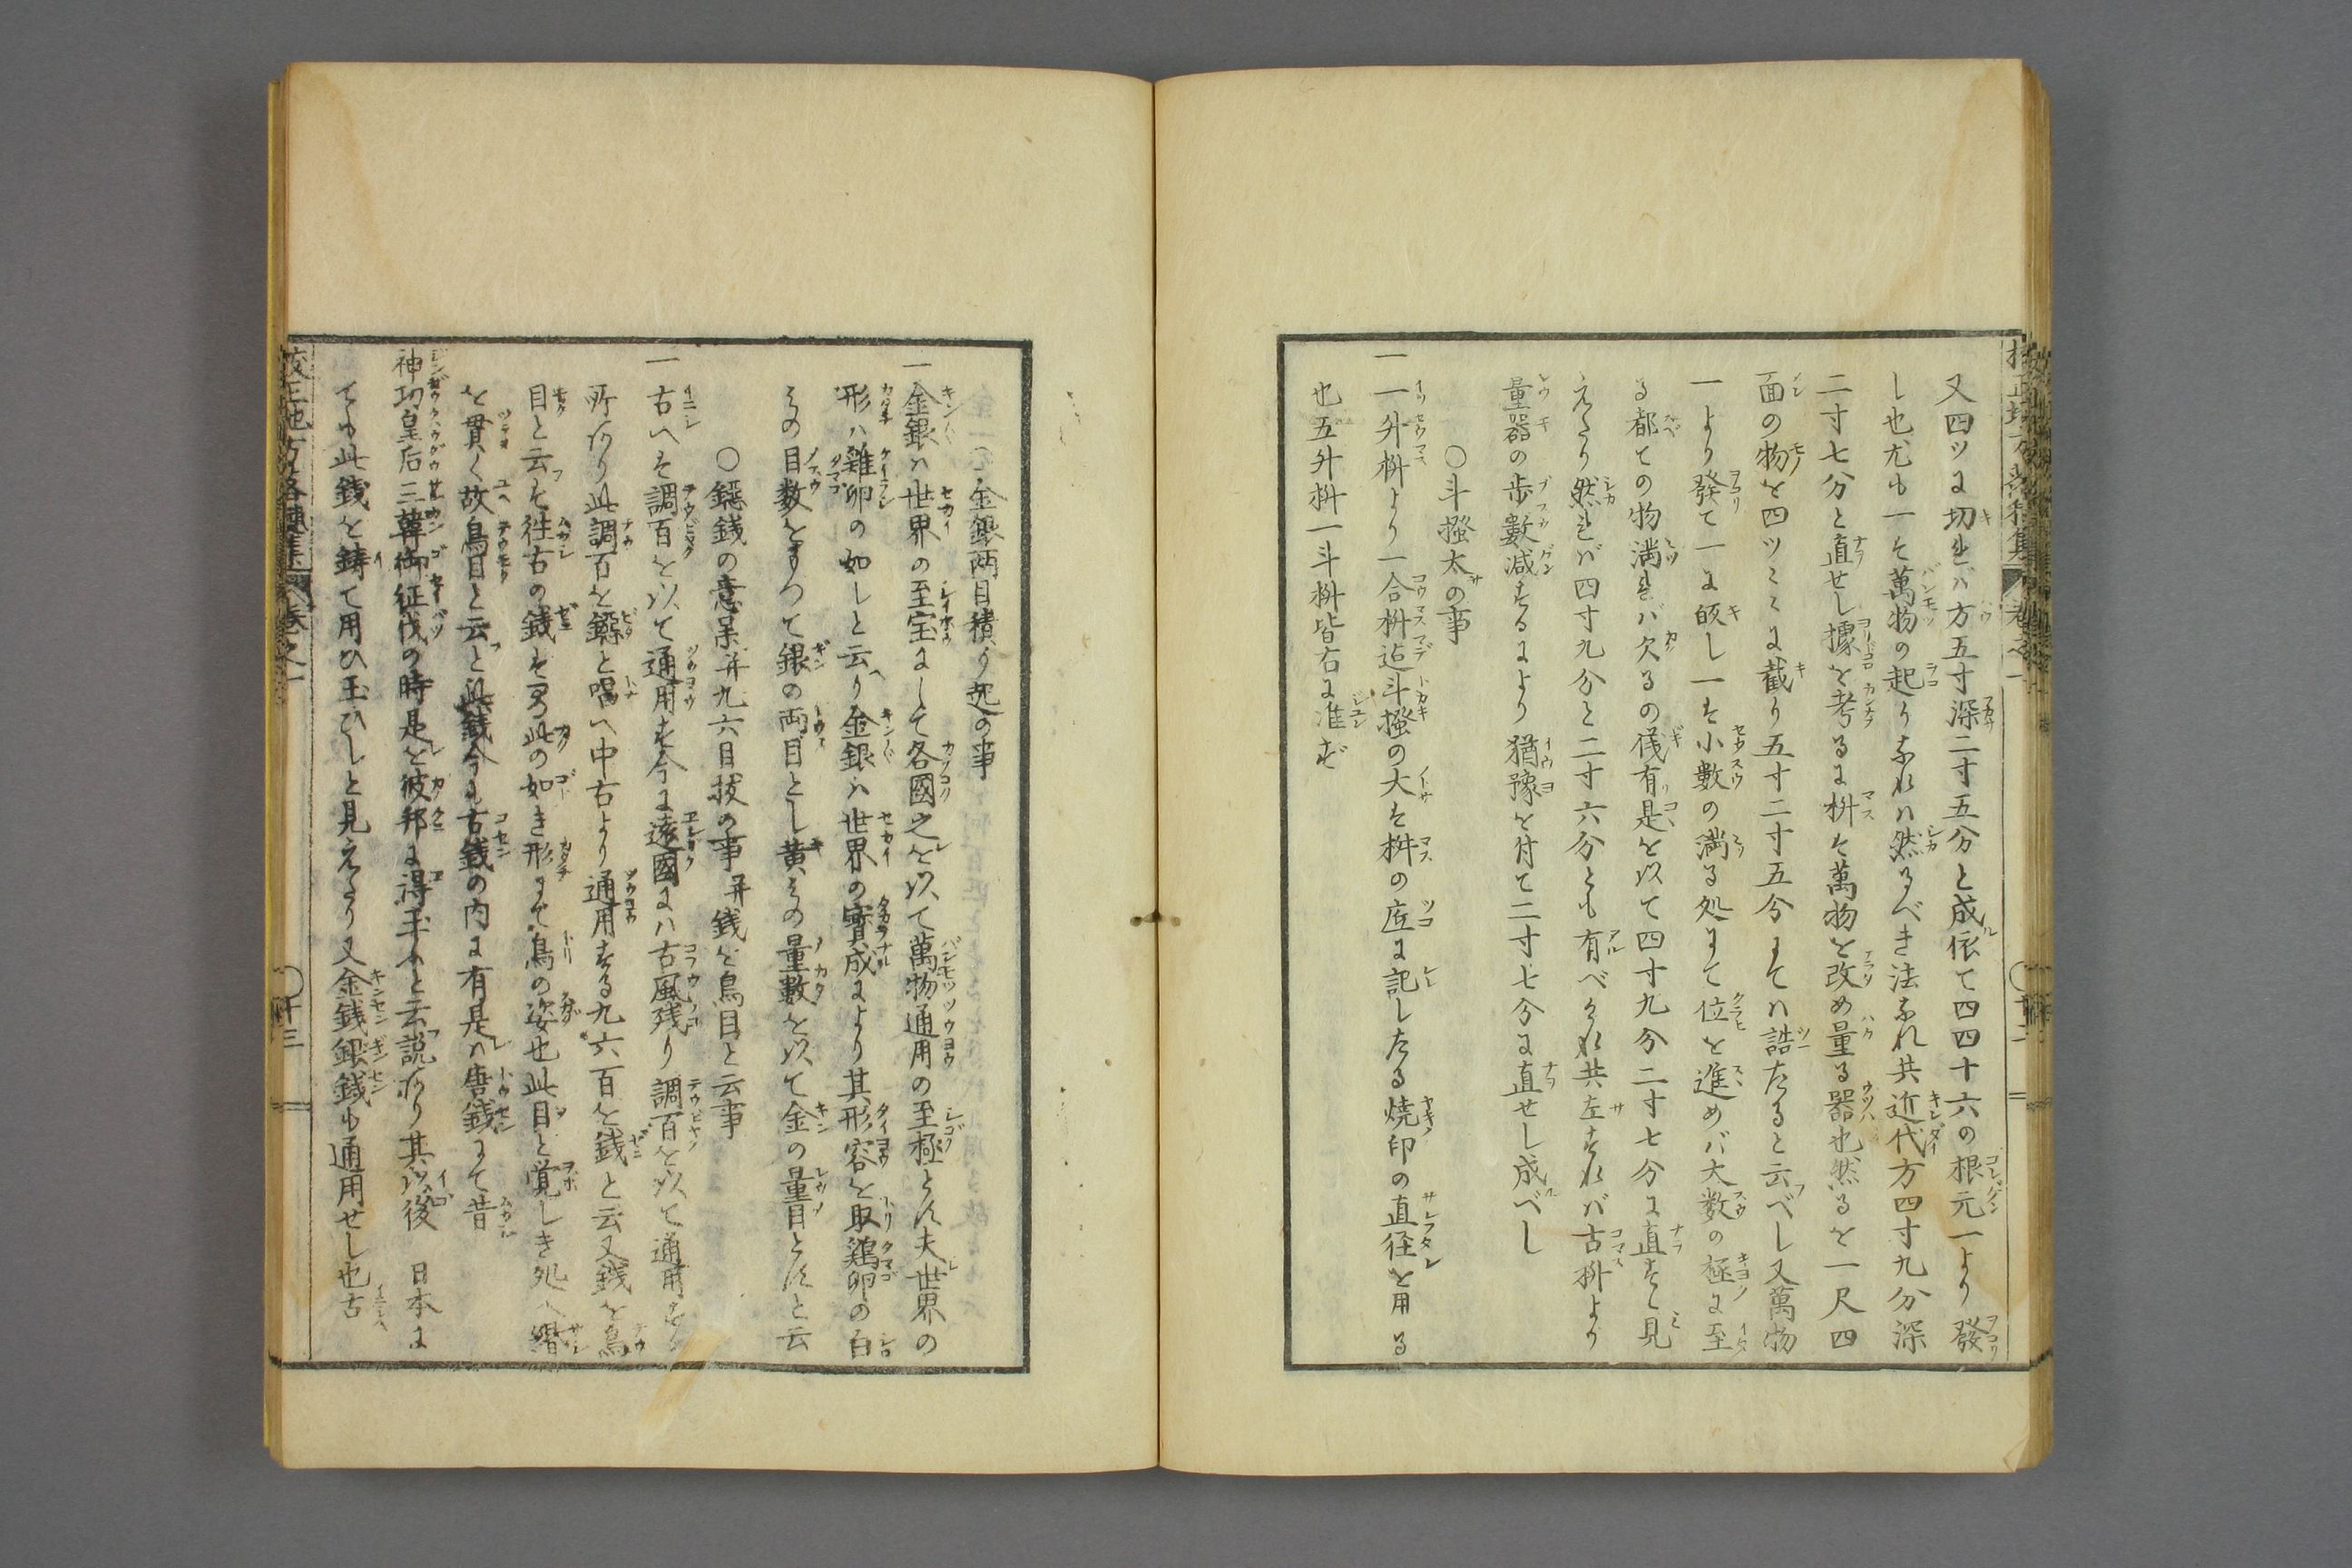 又四ツに切れバ方五寸深二寸五分と成依て四四十六の根元一より發
し也尤も一は萬物の起りなれハ然るべき法なれ共近代方四寸九分深
二寸七分と直せし據を考るに枡は萬物を改め量る器也然るを一尺四
面の物を四ツ〻に截り五寸二寸五分まてハ誥たると云べし又萬物
一より發て一に皈し一は小數の満る処まて位を進めバ大数の極に至
る都ての物満れバ欠るの儀有是を以て四寸九分二寸七分に直すと見
えたり然れバ四寸九分と二寸六分とも有べけれ共左すれバ古枡より
量器の歩數減するより猶豫を付て二寸七分に直せし成べし
〇斗掻太の事
一一升枡より一合枡迠斗掻の大は枡の底に記したる焼印の直径を用る
也五升枡一斗枡皆右に准ず
〇金銀両目積り起の事
一金銀は世界の至宝にして各國之を以て萬物通用の至極とす夫世界の
形ハ雞卵の如しと云り金銀ハ世界の寳成により其形容を取鶏卵の白
みの目数をもつて銀の両目とし黄みの量數を以て金の量目とすと云
〇鐚銭の意味并九六目抜の事并銭を鳥目と云事
一古へは調百を以て通用す今に遠國にハ古風残り調百を以て通用する
所あり此調百を鐚と唱へ中古より通用する九六百を銭と云又銭を鳥
目と云は徃古の銭は此の如き形まて鳥の姿也此目と覚しき処へ緡
を貫く故鳥目と云と此銭今も古銭の内に有是ハ唐銭まて昔
神功皇后三韓御征伐の時是を彼邦に得玉ふと云説あり其以後 日本に
ても此銭を鋳て用ひ玉ひしと見えたり又金銭銀銭も通用せし也古
校正地方落穂集 巻之一 〇 廿三